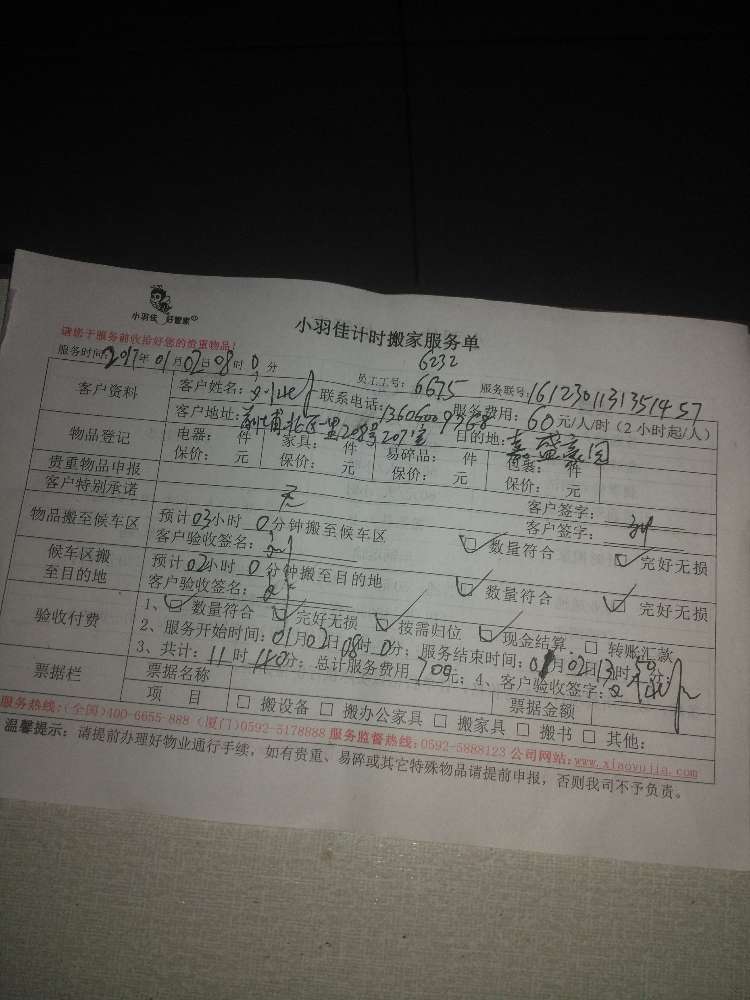 小羽佳 好管家
小羽佳计时搬家服务单
请您于服务前收拾好您的贵重物品!
6232
服务时间:2017年01月02日08时0分 员工工号:6675 服务联号:1612301131351457
客户资料 客户姓名: 联系电话: 服务费用:60元/人/时(2小时起/人)
客户地址: 目的地:嘉盛豪园
物品登记 电器: 件 家具: 件 易碎品: 件 包裹: 件
保价: 元 保价: 元 保价: 元 保价: 元
贵重物品申报 客户签字:
客户特别承诺 无 客户签字:
物品搬至候车区 预计03小时0分钟搬至候车区 数量符合 完好无损
客户验收签名:
候车区搬至目的地 预计02小时0分钟搬至目的地 数量符合 完好无损
客户验收签名:
验收付费 1、数量符合 完好无损 按需归位 现金结算: 转账汇款
2、服务开始时间:01月02日08时0分;服务结束时间:01月02日13时50分;
3、共计:11时40分;总计服务费用700元;4、客户验收签字:
票据栏 票据名称 票据金额
项 目 搬设备 搬办公家具 搬家具 搬书 其他:
服务热线:(全国)400-6655-888 (厦门)0592-5178888 服务监督热线:0592-5888123 公司网站:www.xiaoyujia.com
温馨提示:请提前办理好物业通行手续,如有贵重、易碎或其它特殊物品请提前申报,否则我司不予负责。